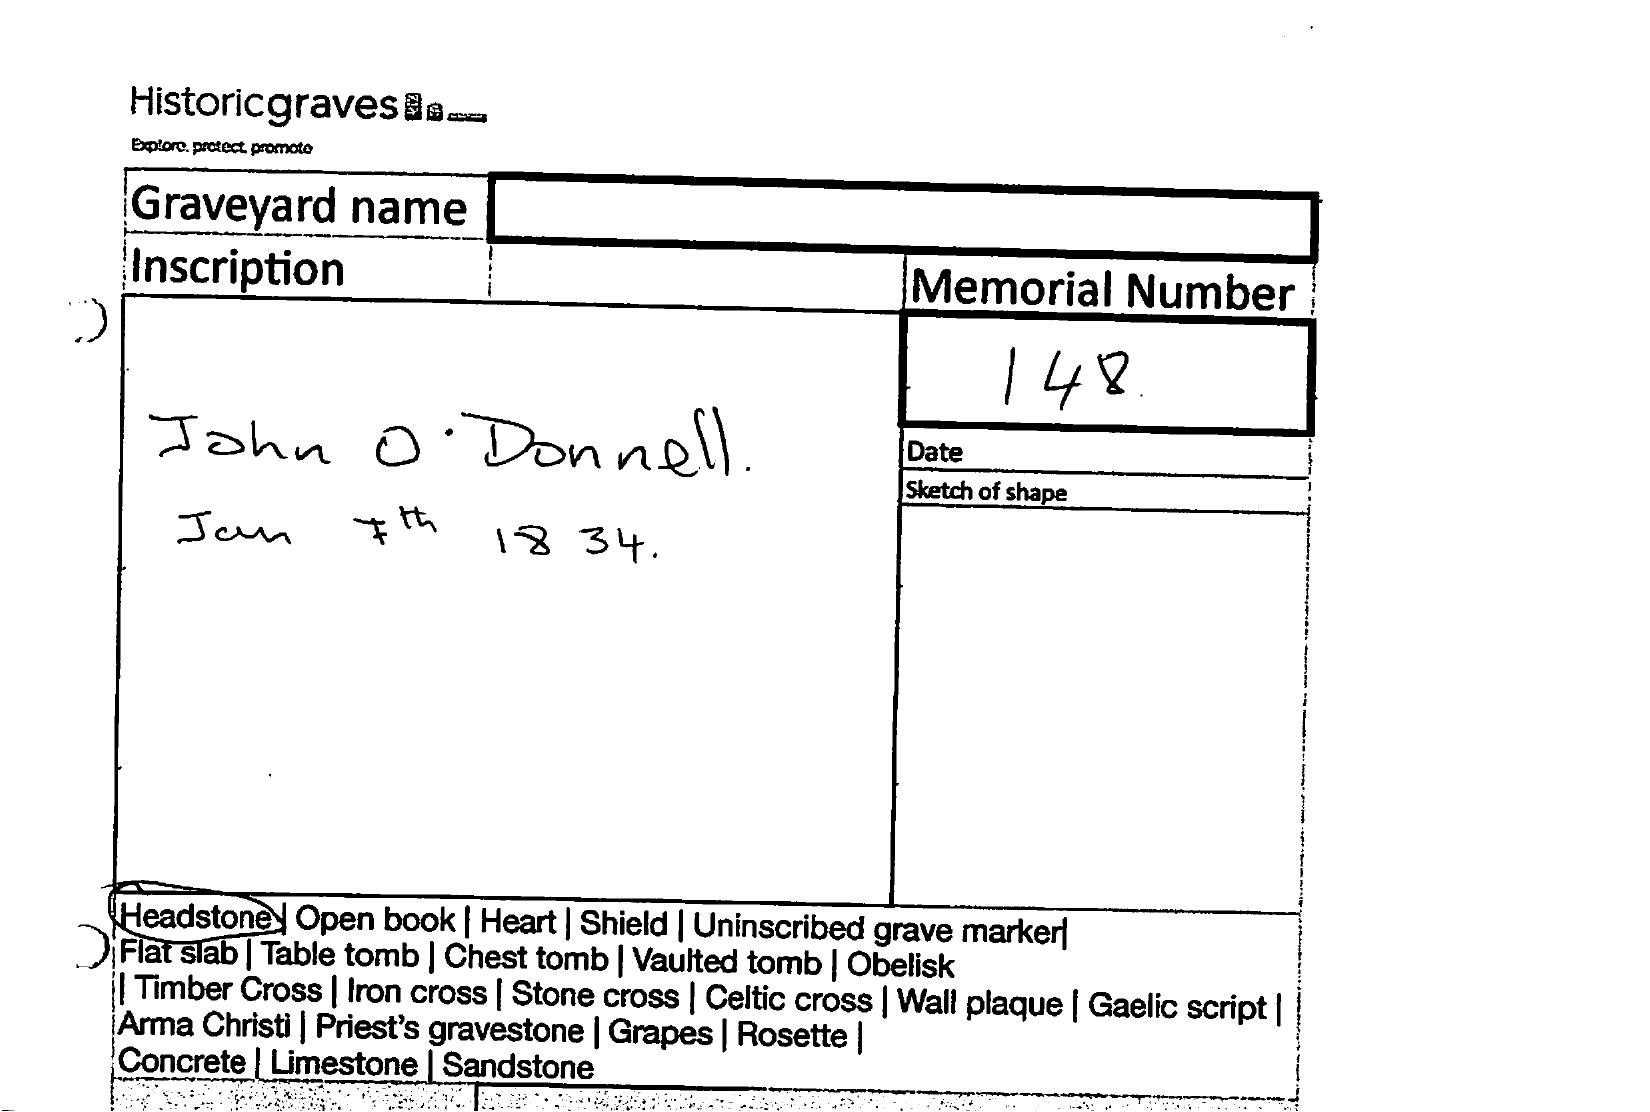 Historicgraves
Explore. protect. promote
Graveyard name
Inscription
Memorial Number
148.
John O'Donnell.
Jan 7th 1834.
Date
Sketch of shape
Headstone | Open book | Heart | Shield | Uninscribed grave marker|
Flat slab | Table tomb | Chest tomb | Vaulted tomb | Obelisk
| Timber Cross | Iron cross | Stone cross | Celtic cross | Wall plaque | Gaelic script |
Arma Christi | Priest's gravestone | Grapes | Rosette |
Concrete | Limestone | Sandstone